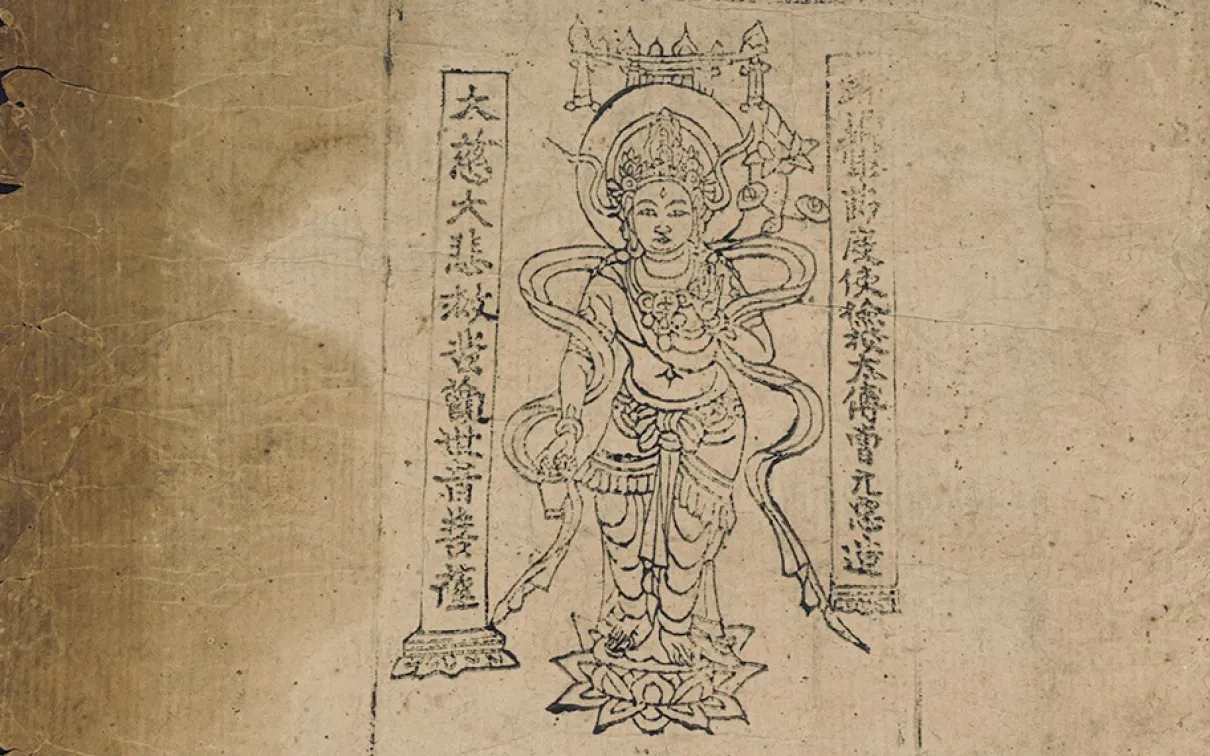 歸義軍節度使檢校太傅曹元忠造
大慈大悲救苦觀世音菩薩